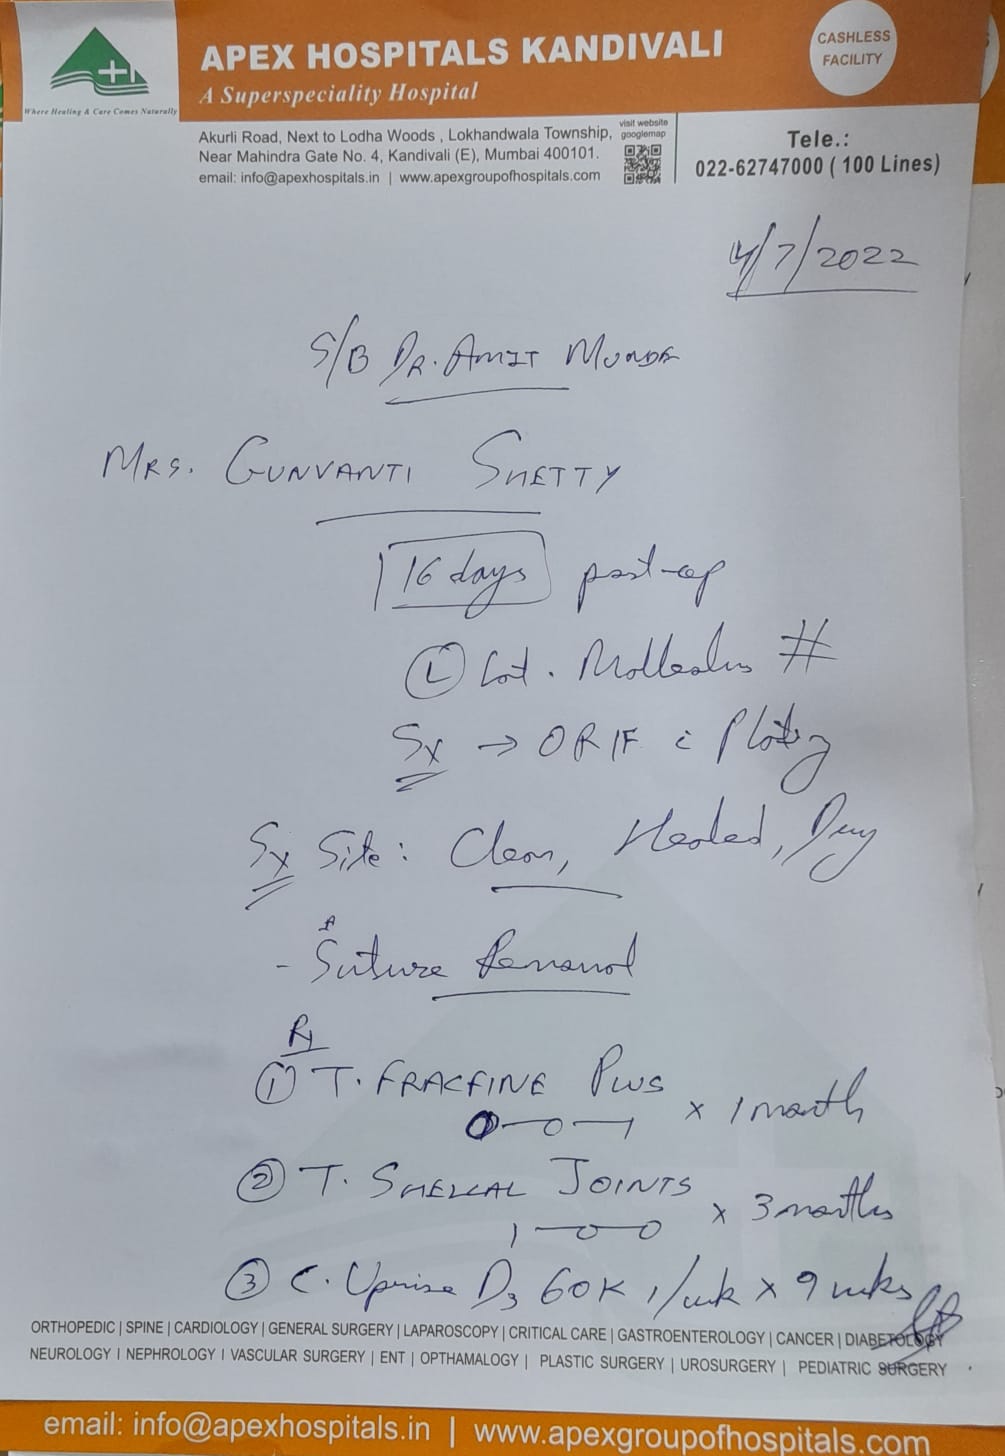 APEX HOSPITALS KANDIVALI
A Superspeciality Hospital
Where Healing & Care Comes Naturally
CASHLESS
FACILITY
Akurli Road, Next to Lodha Woods , Lokhandwala Township,
Near Mahindra Gate No. 4, Kandivali (E), Mumbai 400101.
email: info@apexhospitals.in | www.apexgroupofhospitals.com
visit website
googlemap
Tele.:
022-62747000 ( 100 Lines)
4/7/2022
S/B DR. AMIT
MRS. GUNVANTI SHETTY
16 days post-op
(L) Lat. Malleolus #
Sx → ORIF c Plating
Sx Site: Clean, Healed, Dry
- Suture Removal
Rx
① T. FRACFINE PLUS
0-0-1 x 1 month
② T. SHELCAL JOINTS
1-0-0 x 3 months
③ C. Uprise D3 60K 1/wk x 9 wks
ORTHOPEDIC | SPINE | CARDIOLOGY | GENERAL SURGERY | LAPAROSCOPY | CRITICAL CARE | GASTROENTEROLOGY | CANCER | DIABETOLOGY
NEUROLOGY I NEPHROLOGY I VASCULAR SURGERY | ENT | OPTHAMALOGY | PLASTIC SURGERY | UROSURGERY | PEDIATRIC SURGERY
email: info@apexhospitals.in | www.apexgroupofhospitals.com